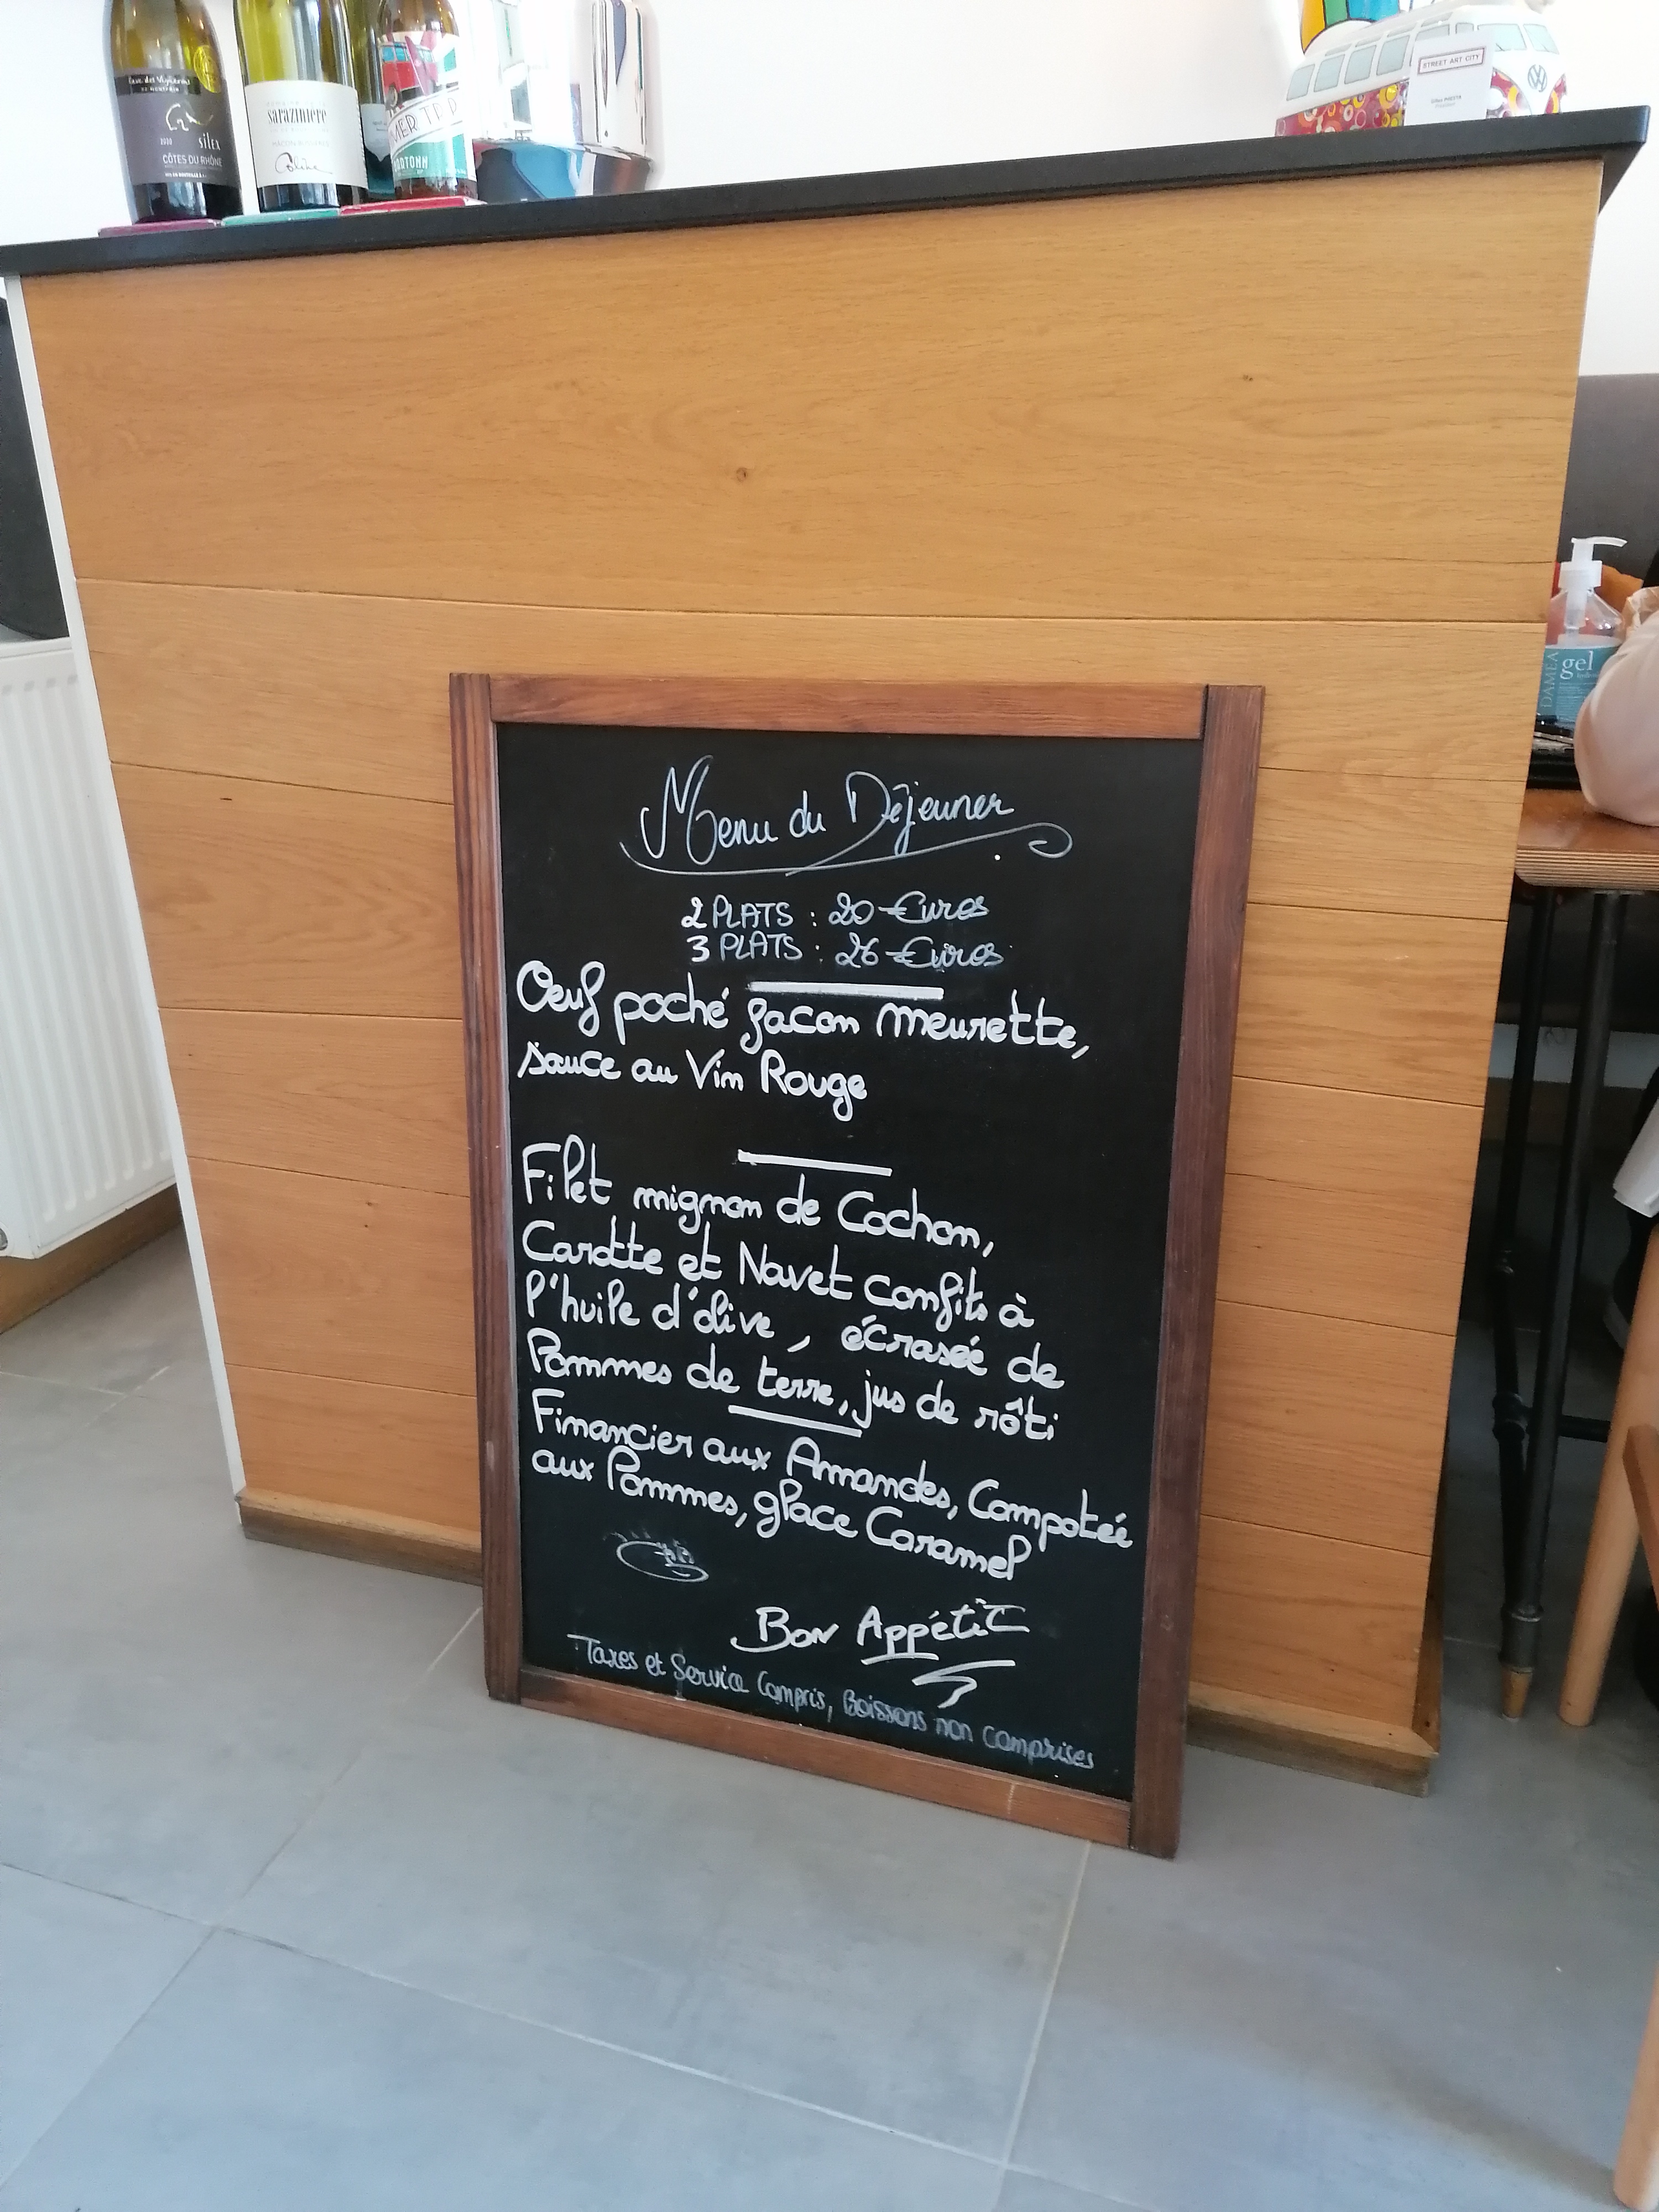 Cave des Vignerons
DE MONTFRIN
2020
SILEX
CÔTES DU RHÔNE
sarazinière
STREET ART CITY
DAMEA
gel
Menu du Déjeuner
2 PLATS : 20 €uros
3 PLATS : 26 €uros
Oeuf poché facon meurette,
sauce au Vin Rouge
Filet mignon de Cochon,
Carotte et Navet confits à
l'huile d'olive, écrasée de
Pommes de terre, jus de rôti
Financier aux Amandes, Compotée
aux Pommes, glace Caramel
Bon Appétit
Taxes et Service Compris, Boissons non comprises